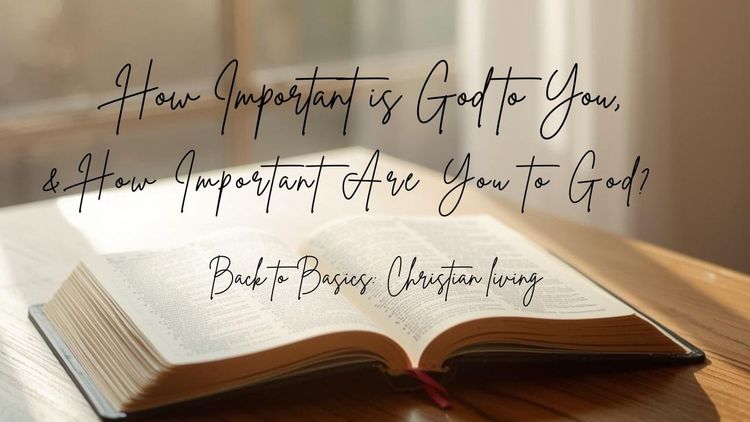 How Important is God to You,
& How Important Are You to God?
Back to Basics: Christian living